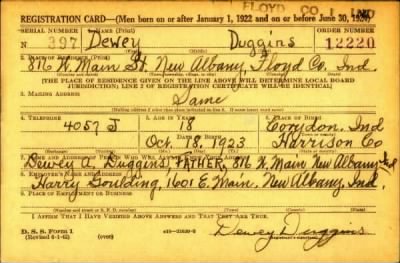 FLOYD CO. 1 IND
REGISTRATION CARD—(Men born on or after January 1, 1922 and on or before June 30, 1924)
SERIAL NUMBER 1. NAME (Print) ORDER NUMBER
N 397 Dewey Duggins 12220
2. PLACE OF RESIDENCE (Print)
816 W. Main St. New Albany, Floyd Co. Ind.
[THE PLACE OF RESIDENCE GIVEN ON THE LINE ABOVE WILL DETERMINE LOCAL BOARD
JURISDICTION; LINE 2 OF REGISTRATION CERTIFICATE WILL BE IDENTICAL]
3. MAILING ADDRESS
Same
4. TELEPHONE 5. AGE IN YEARS 6. PLACE OF BIRTH
4057 J 18 Corydon, Ind
DATE OF BIRTH
Oct. 18, 1923 Harrison Co
7. NAME AND ADDRESS OF PERSON WHO WILL ALWAYS KNOW YOUR ADDRESS
Dewey A. Duggins, FATHER, 816 W. Main New Albany, Ind
8. EMPLOYER'S NAME AND ADDRESS
Harry Goulding, 1601 E. Main, New Albany, Ind.
9. PLACE OF EMPLOYMENT OR BUSINESS
I AFFIRM THAT I HAVE VERIFIED ABOVE ANSWERS AND THAT THEY ARE TRUE.
D. S. S. Form 1
(Revised 6-1-42) (over) Dewey Duggins